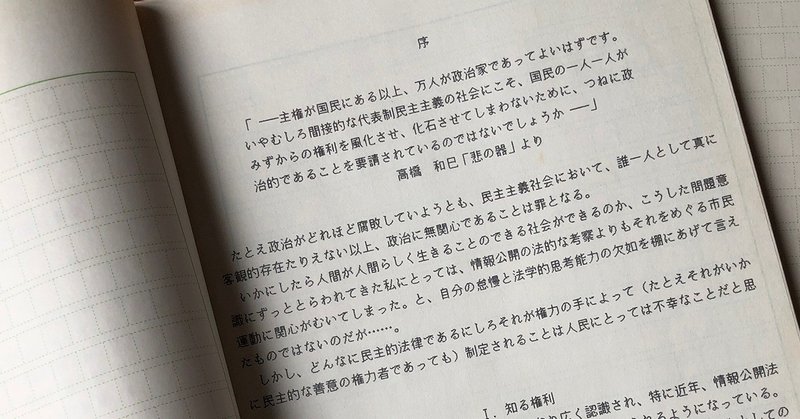 序
「 ──主権が国民にある以上、万人が政治家であってよいはずです。
いやむしろ間接的な代表制民主主義の社会にこそ、国民の一人一人が
みずからの権利を風化させ、化石させてしまわないために、つねに政
治的であることを要請されているのではないでしょうか ──」
高橋 和巳「悲の器」より
たとえ政治がどれほど腐敗していようとも、民主主義社会において、誰一人として真に
客観的存在たりえない以上、政治に無関心であることは罪となる。
いかにしたら人間が人間らしく生きることのできる社会ができるのか、こうした問題意
識にずっととらわれてきた私にとっては、情報公開の法的な考察よりもそれをめぐる市民
運動に関心がむいてしまった。と、自分の怠慢と法学的思考能力の欠如を棚にあげて言え
たものではないのだが……。
しかし、どんなに民主的法律であるにしろそれが権力の手によって（たとえそれがいか
に民主的な善意の権力者であっても）制定されることは人民にとっては不幸なことだと思
Ⅰ. 知る権利
り広く認識され、特に近年、情報公開法
られるようになっている。
としての